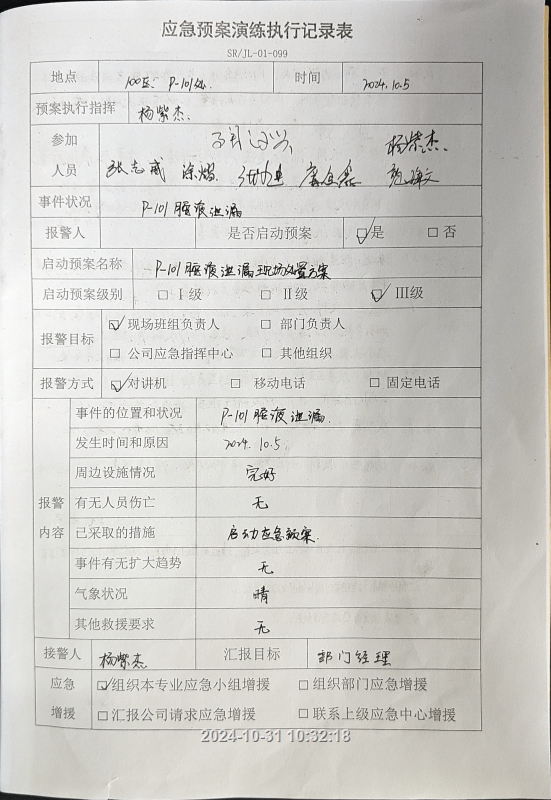 应急预案演练执行记录表
SR/JL-01-099
地点 100区 P-101处. 时间 2024.10.5
预案执行指挥 杨紫杰.
参加 杨紫杰.
人员 张志威 涂熠.
事件状况 P-101胺液泄漏
报警人 是否启动预案 ☑是 □否
启动预案名称 P-101胺液泄漏现场处置方案
启动预案级别 □Ⅰ级 □Ⅱ级 ☑Ⅲ级
报警目标 ☑现场班组负责人 □部门负责人
□公司应急指挥中心 □其他组织
报警方式 ☑对讲机 □移动电话 □固定电话
报警内容
事件的位置和状况 P-101胺液泄漏.
发生时间和原因 2024.10.5.
周边设施情况 完好
有无人员伤亡 无
已采取的措施 启动应急预案.
事件有无扩大趋势 无
气象状况 晴
其他救援要求 无
接警人 杨紫杰 汇报目标 部门经理
应急 ☑组织本专业应急小组增援 □组织部门应急增援
增援 □汇报公司请求应急增援 □联系上级应急中心增援
2024-10-31 10:32:18